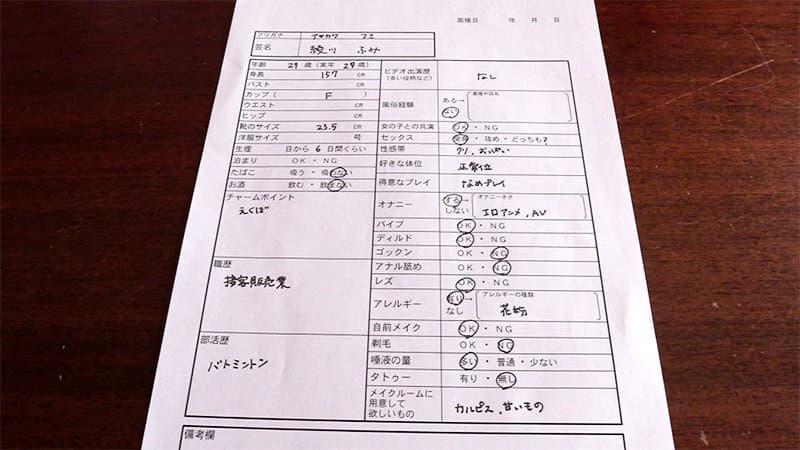 面接日 年 月 日
フリガナ アヤカワ フミ
芸名 綾川 ふみ
年齢 29 歳 (実年 29 歳)
身長 157 cm
バスト cm
カップ ( F )
ウエスト cm
ヒップ cm
靴のサイズ 23.5 cm
洋服サイズ 号
生理 日から 6 日間くらい
泊まり OK ・ NG
たばこ 吸う ・ 吸わない
お酒 飲む ・ 飲まない
チャームポイント
えくぼ
職歴
接客販売業
部活歴
バトミントン
ビデオ出演歴
(多い役柄など)
なし
風俗経験 ある→
ない
女の子との共演 OK ・ NG
セックス 受身 ・ 攻め ・ どっちも?
性感帯 クリ、おっぱい
好きな体位 正常位
得意なプレイ なめプレイ
オナニー する→ オナニーネタ
しない エロアニメ、AV
バイブ OK ・ NG
ディルド OK ・ NG
ゴックン OK ・ NG
アナル舐め OK ・ NG
レズ OK ・ NG
アレルギー 有り→ アレルギーの種類
なし 花粉
自前メイク OK ・ NG
剃毛 OK ・ NG
唾液の量 多い ・ 普通 ・ 少ない
タトゥー 有り ・ 無し
メイクルームに
用意して
欲しいもの
カルピス、甘いもの
備考欄